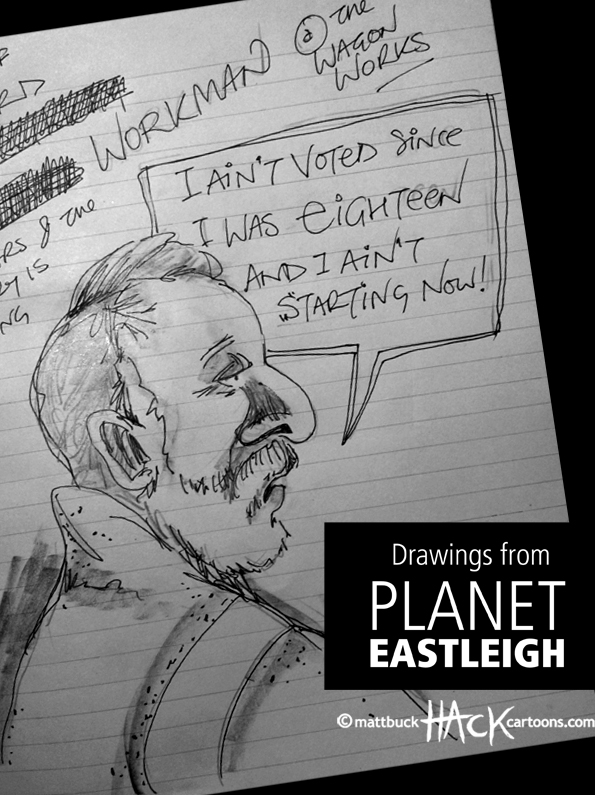 WORKMAN @ the
WAGON
WORKS
RS & the
IS
I AiN'T VOTED SiNCE
I WAS EiGHTEEN
AND I AiN'T
STARTING NOW!
Drawings from
PLANET
EASTLEIGH
© mattbuck HACK cartoons.com